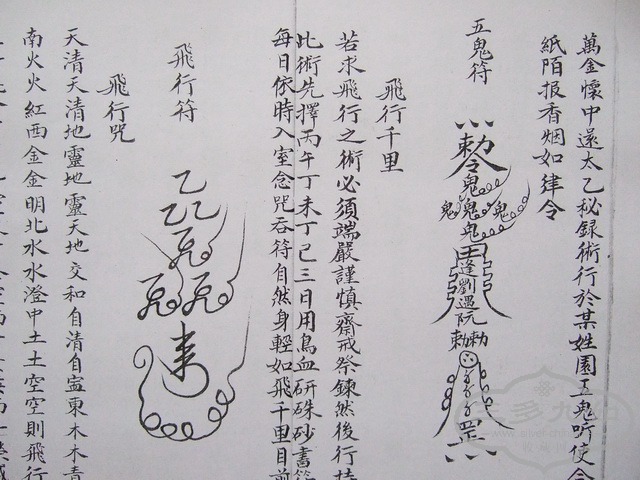 萬金懷中還太乙秘録術行於某姓園五鬼听使令
紙陌报香烟如律令
五鬼符
敕令鬼鬼鬼鬼鬼
逢劉遇阮
敕敕
罡
飛行千里
若求飛行之術必須端嚴謹慎齋戒祭鍊然後行持
此術先擇丙午丁未丁己三日用鳥血研硃砂書符
每日依時入室念咒吞符自然身輕如飛千里目前
飛行符
乙乙乙
飛行咒
天清天清地靈地靈天地交和自清自寍東木木青
南火火紅西金金明北水水澄中土土空空則飛行